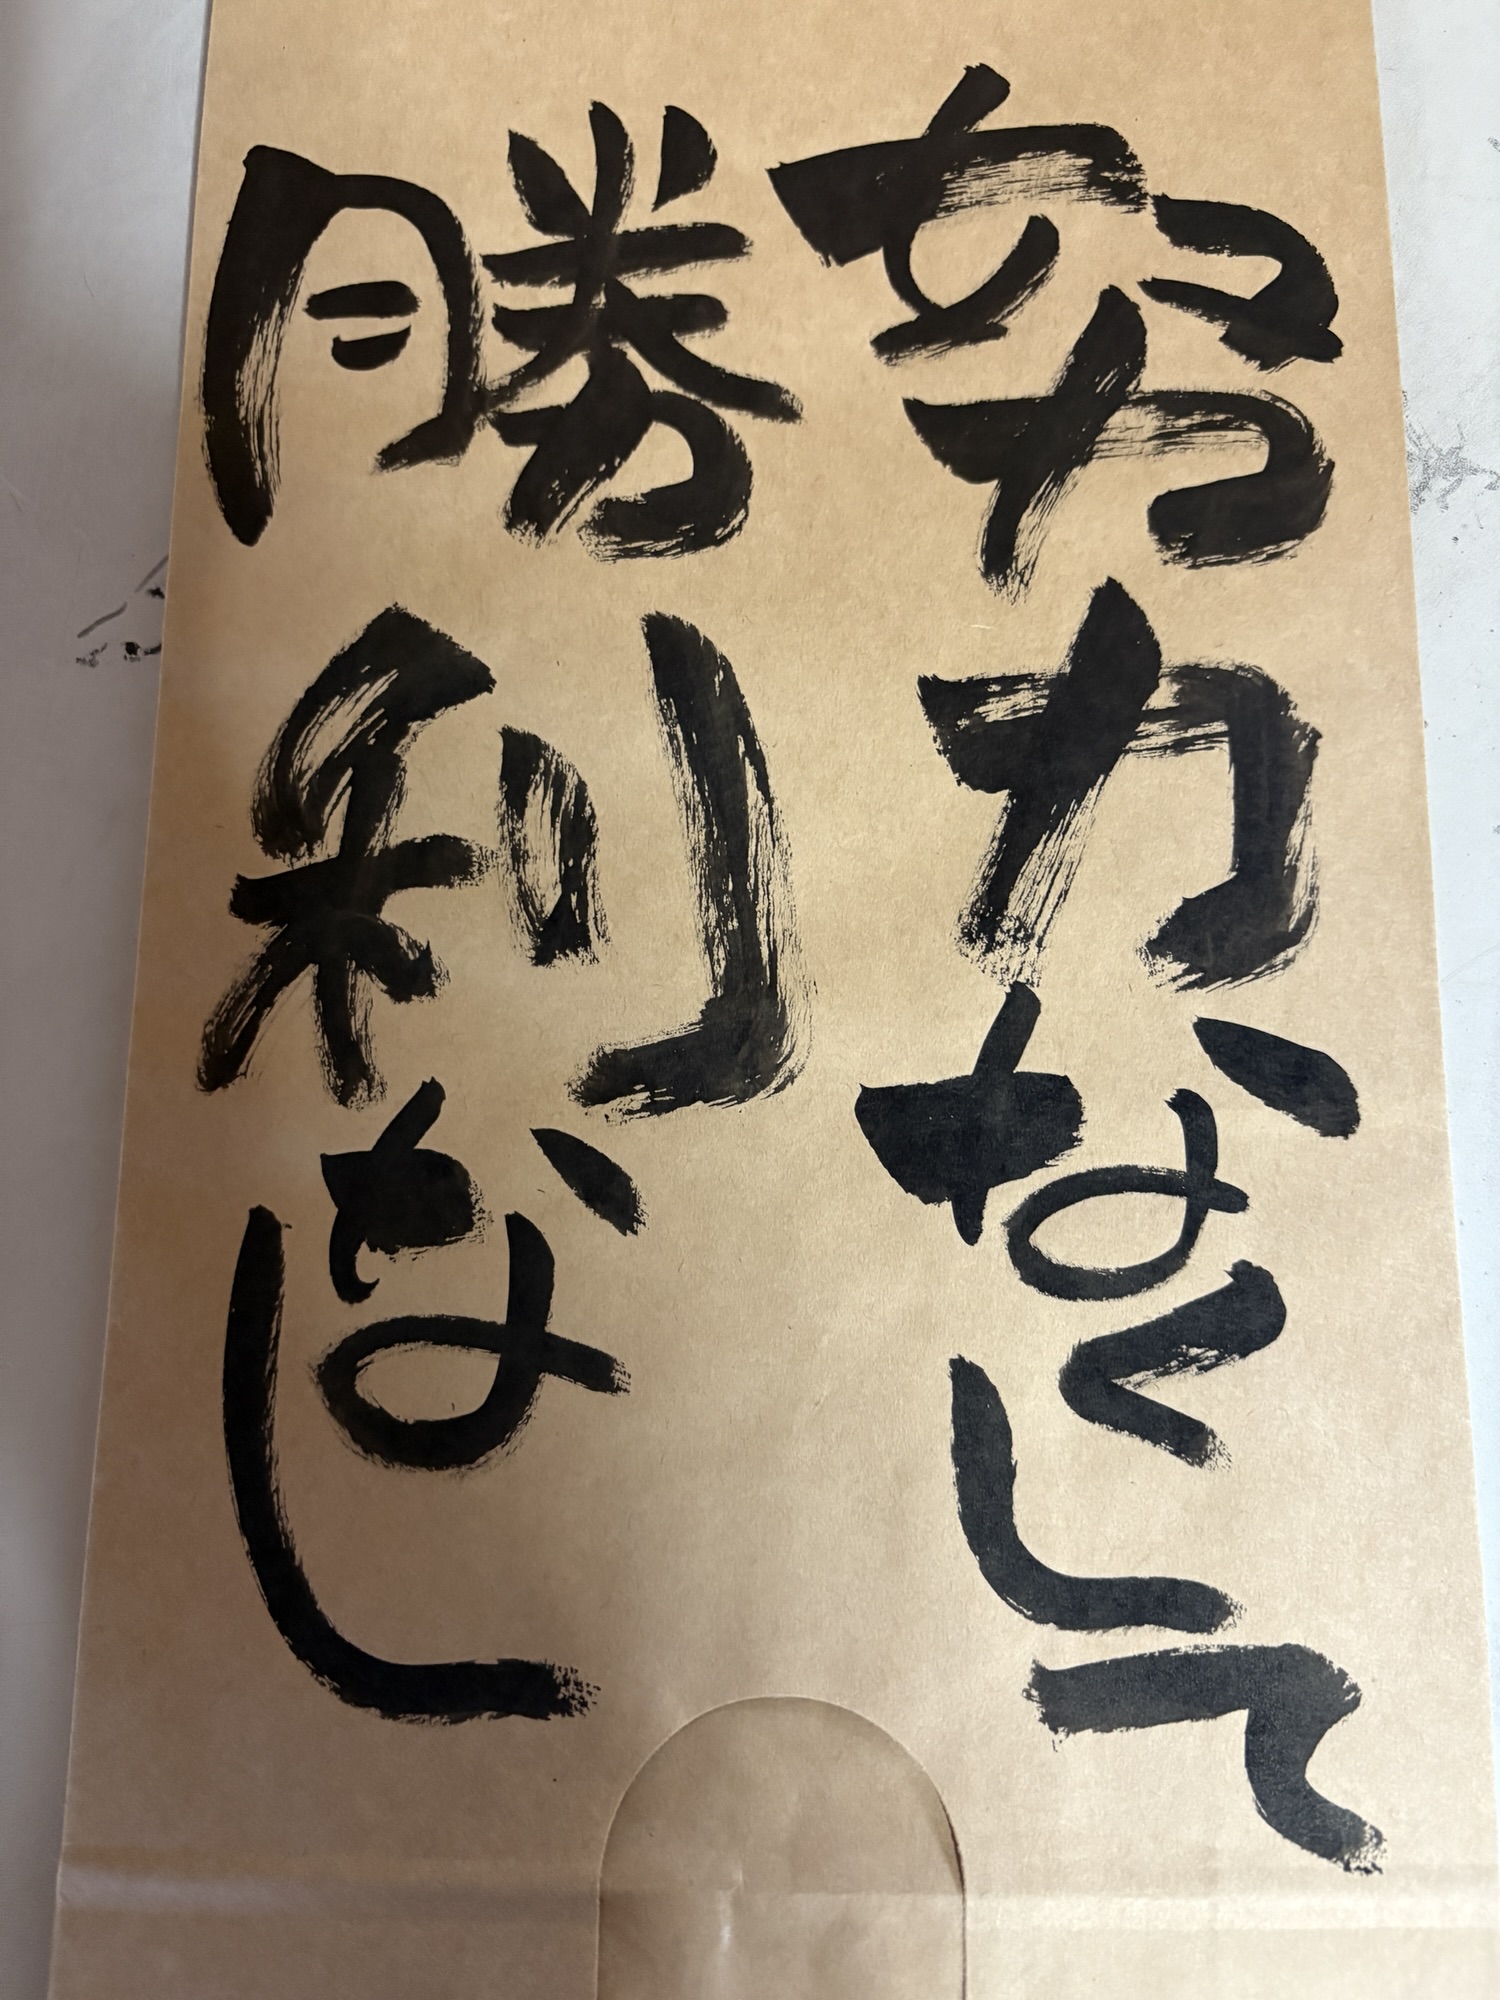 努力なくして
勝利なし